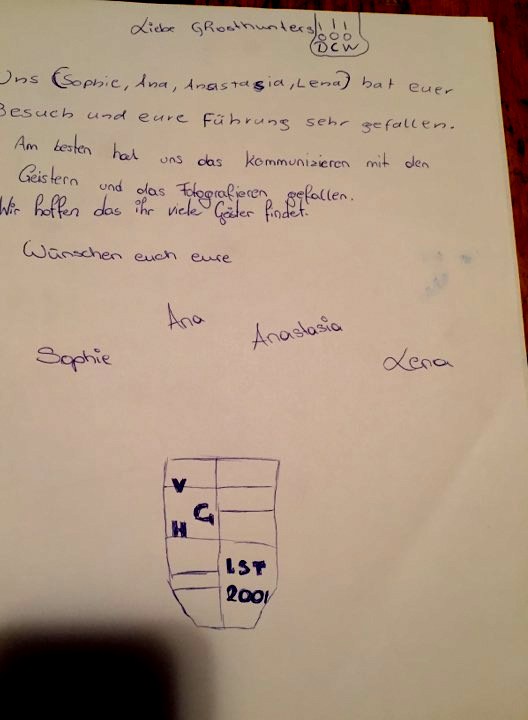 Liebe Ghosthunters
DCW
Uns (Sophie, Ana, Anastasia, Lena) hat euer
Besuch und eure Führung sehr gefallen.
Am besten hat uns das kommunizieren mit den
Geistern und das Fotografieren gefallen.
Wir hoffen das ihr viele Geister findet.
Wünschen euch eure
Ana
Anastasia
Sophie
Lena
V
G
H
LST
2001